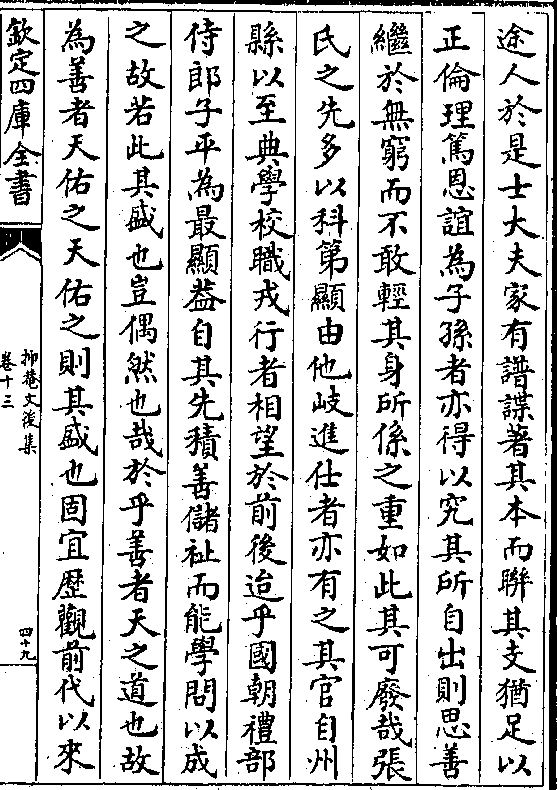 途人於是士大夫家有譜諜著其本而聯其支猶足以
正倫理篤恩誼為子孫者亦得以究其所自出則思善
繼於無窮而不敢輕其身所係之重如此其可廢哉張
氏之先多以科第顯由他岐進仕者亦有之其官自州
縣以至典學校職戎行者相望於前後迨乎國朝禮部
侍郎子平為最顯葢自其先積善儲祉而能學問以成
之故若此其盛也豈偶然也哉於乎善者天之道也故
為善者天佑之天佑之則其盛也固宜歷觀前代以來
欽定四庫全書
抑菴文後集
卷十三
四十九